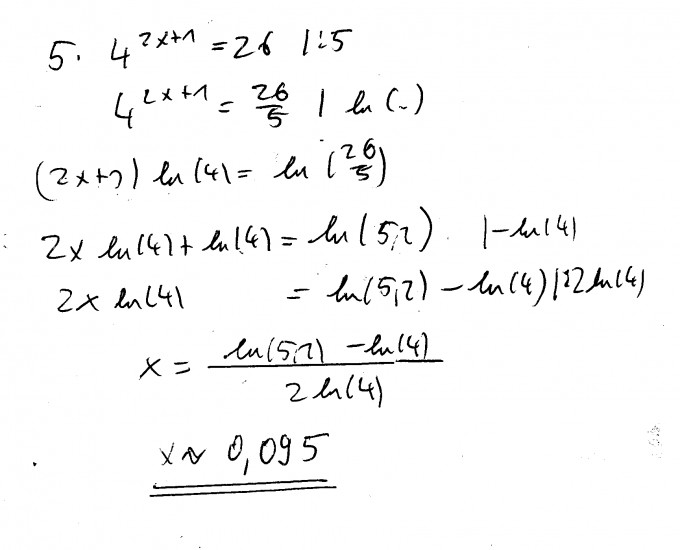 5 · 4^(2x+1) = 26 | : 5
4^(2x+1) = 26/5 | ln (..)
(2x+1) ln (4) = ln (26/5)
2x ln(4) + ln(4) = ln(5,2) | - ln(4)
2x ln(4) = ln(5,2) - ln(4) | : 2 ln(4)
x = (ln(5,2) - ln(4)) / (2 ln(4))
x ≈ 0,095